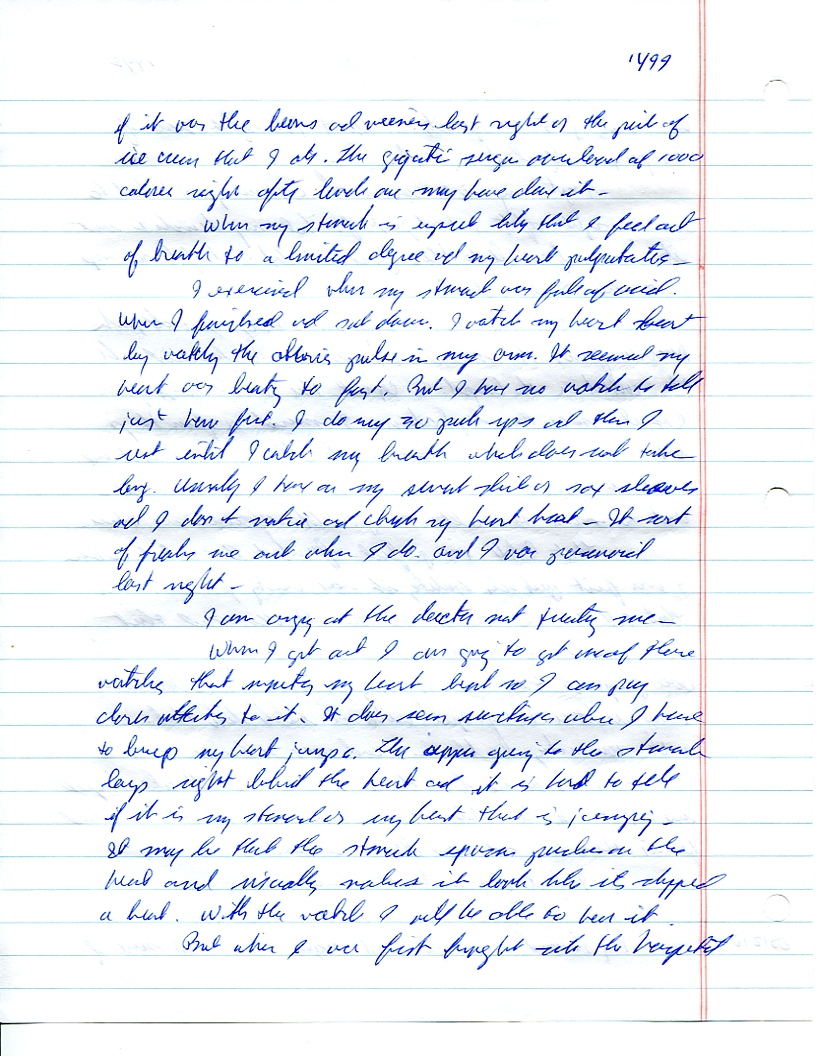 1499
if it was the beans and weeners last night or the pint of
ice cream that I ate. The gigantic sugar overload of 1000
calories right after lunch one may have done it -
When my stomach is upset like that I feel out
of breath to a limited degree and my heart palpitates -
I exercised when my stomach was full of acid.
When I finished and sat down. I watch my heart beat
by watching the arteries pulse in my arm. It seemed my
heart was beating to fast. But I have no watch to tell
just how fast. I do my 30 push ups and then I
rest until I catch my breath which does not take
long. Usually I have on my sweat shirt or sox sleeves
and I don't notice and check my heart beat - It sort
of freaks me out when I do. and I was paranoid
last night -
I am angry at the doctor not treating me -
When I get out I am going to get one of those
watches that monitor my heart beat so I can pay
closer attention to it. It does seem sometimes when I have
to burp my heart jumps. The going to the stomach
lays right behind the heart and it is hard to tell
if it is my stomach or my heart that is jumping -
It may be that the stomach spasm pushes on the
heart and usually makes it look like it skipped
a beat. With the watch I will be able to hear it.
But when I was first brought into the hospital